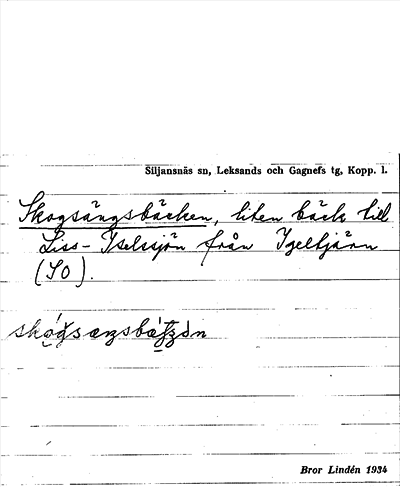 Siljansnäs sn, Leksands och Gagnefs tg, Kopp. l.
Skogsängsbäcken, liten bäck till
Liss-Yselssjön från Igeltjärn
(SO).
Bror Lindén 1934